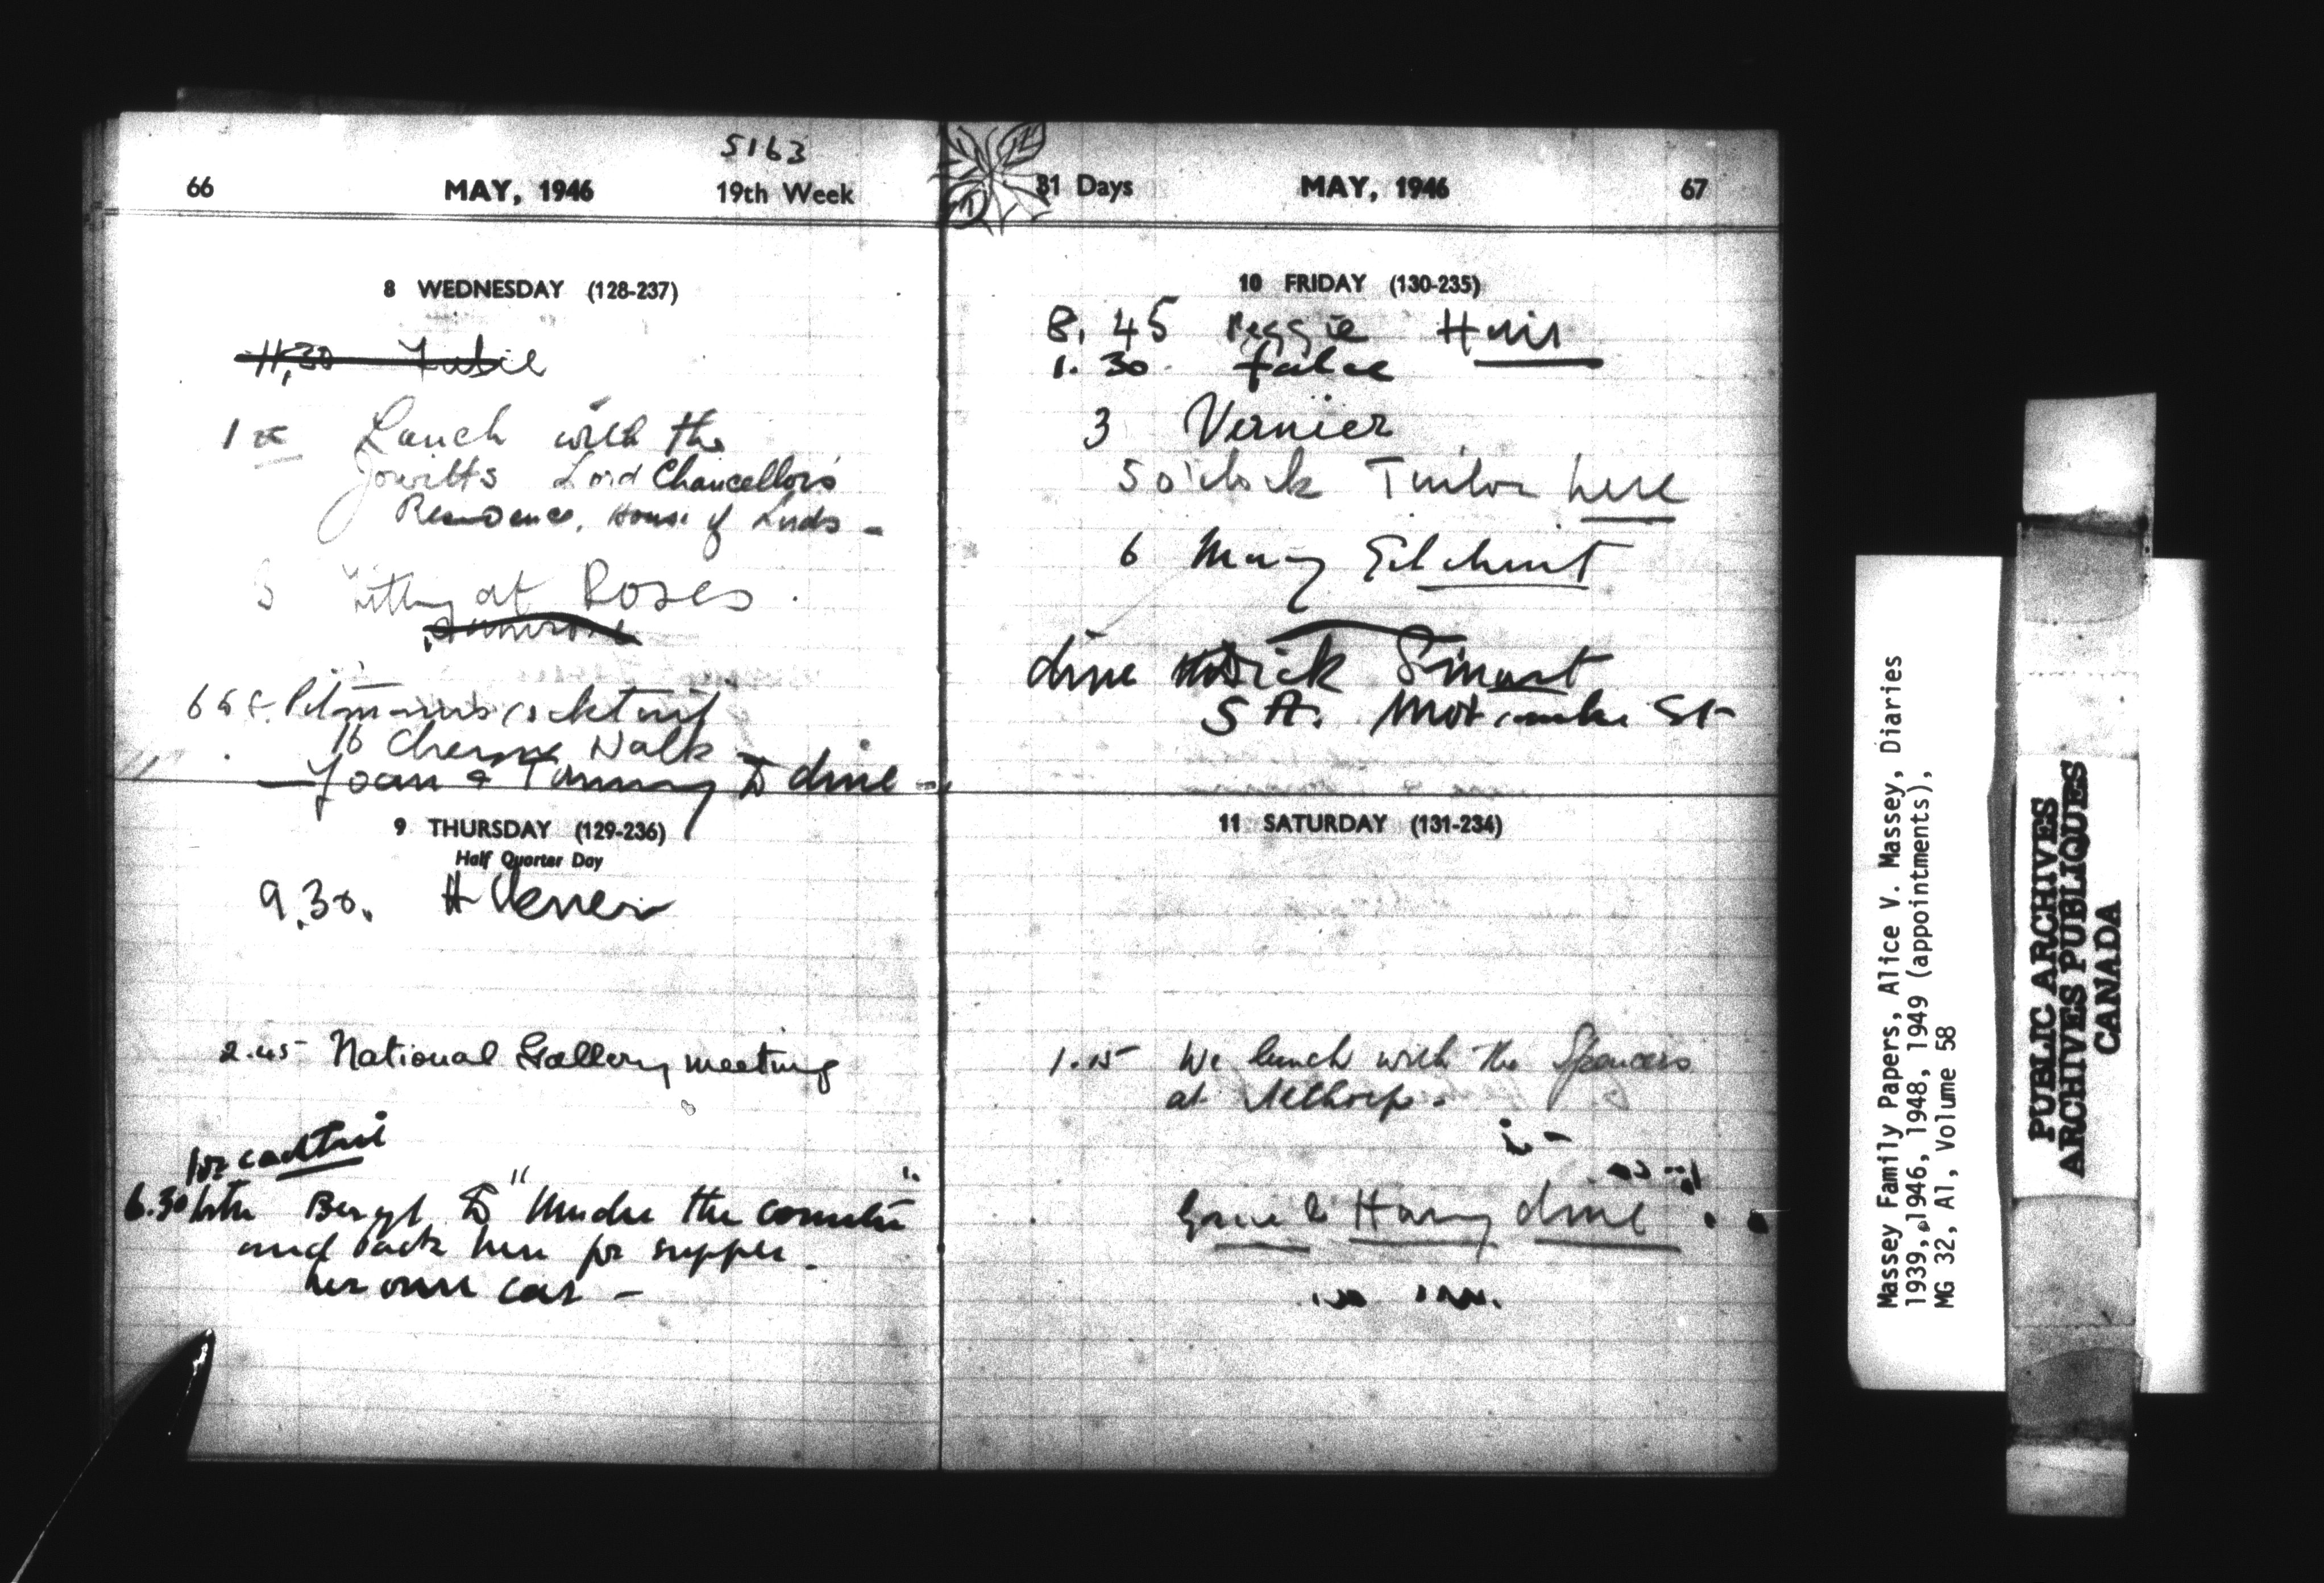 5163
66 MAY, 1946 19th Week
8 WEDNESDAY (128-237)
11.30
Lunch with the
Jowitts Lord Chancellor's
Residence, House of Lords -
at Roses
16 Cheyne Walk
Joan & Tommy to dine -
9 THURSDAY (129-236)
Half Quarter Day
9.30.
2.45 National Gallery meeting
for cocktail
6.30 Beryl to "Under the counter"
and back here for supper -
her own car -
31 Days MAY, 1946 67
10 FRIDAY (130-235)
8.45 Peggie Hair
1.30. face
3 Vernier
5 o'clock here
6 Mary Gilchrist
dine Dick Smart
5A. Motcombe St
11 SATURDAY (131-234)
1.15 We lunch with the Spencers
at Althorp.
& Harry dine
Massey Family Papers, Alice V. Massey, Diaries
1939, 1946, 1948, 1949 (appointments),
MG 32, A1, Volume 58
PUBLIC ARCHIVES
ARCHIVES PUBLIQUES
CANADA